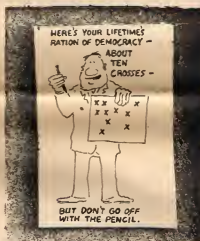 HERE'S YOUR LIFETIME'S
RATION OF DEMOCRACY –
ABOUT
TEN
CROSSES –
X X X
X X X X
X X
X
BUT DON'T GO OFF
WITH THE PENCIL.